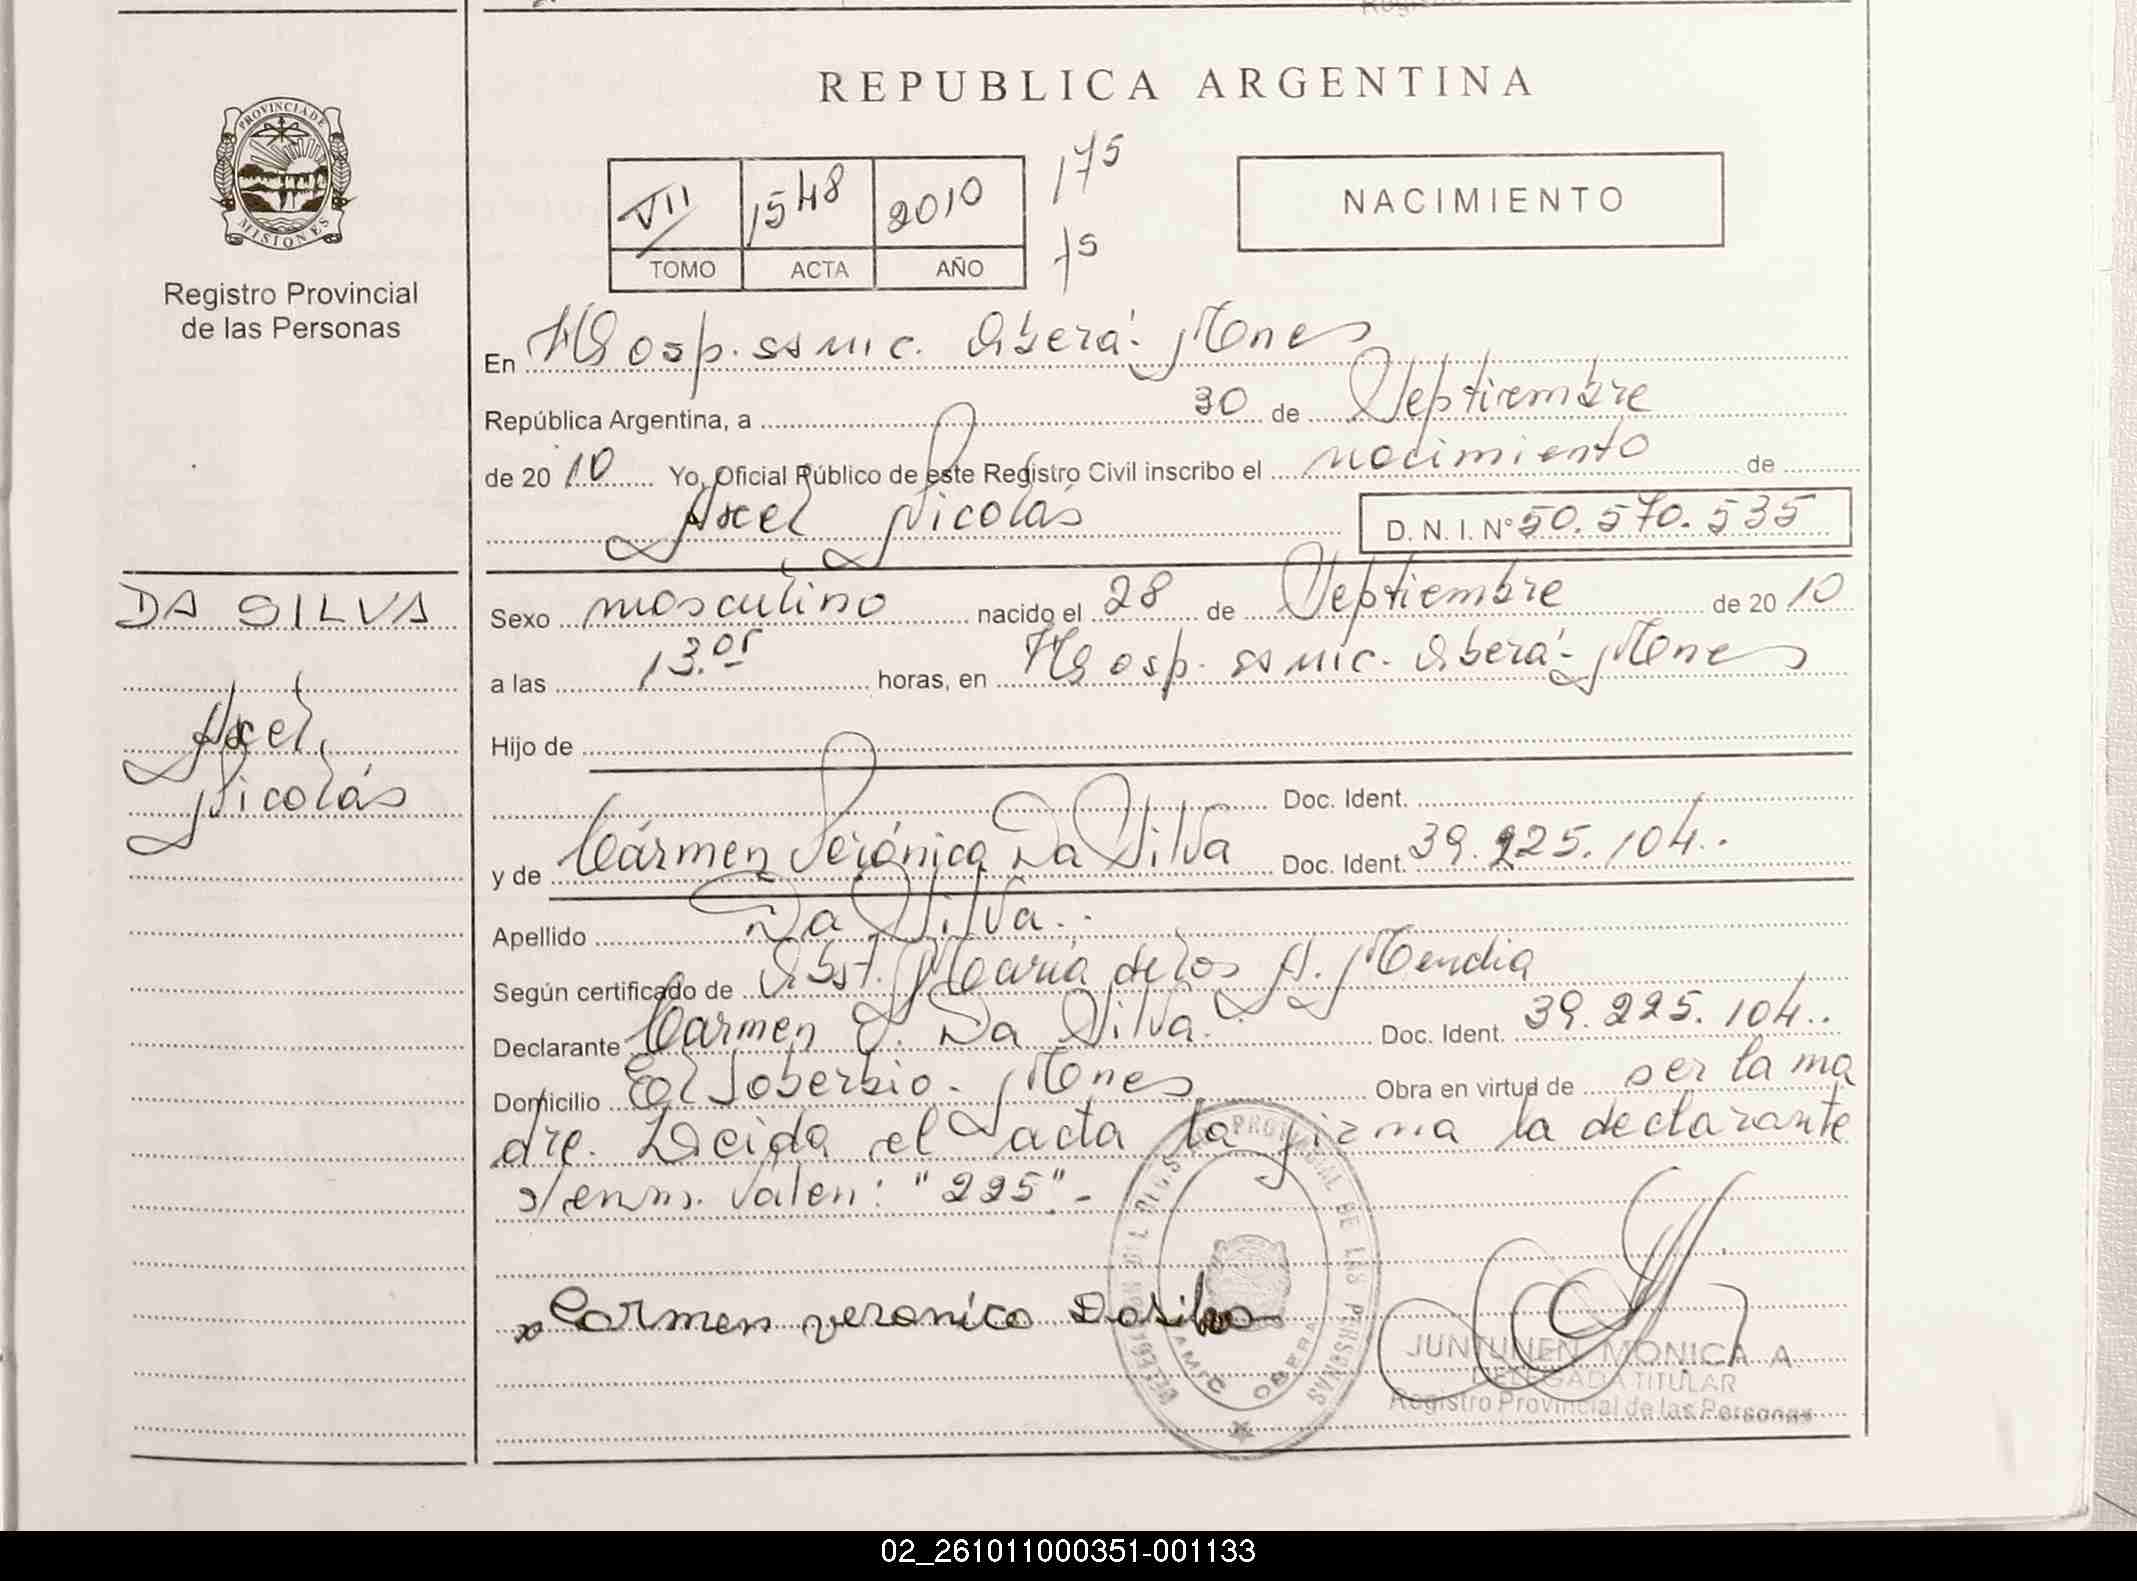 REPUBLICA ARGENTINA
PROVINCIA DE
MISIONES
Registro Provincial
de las Personas
VII 1548 2010
TOMO ACTA AÑO
175
75
NACIMIENTO
En Hosp. ss mic. Oberá. Mnes
República Argentina, a 30 de Septiembre
de 20 10 Yo, Oficial Público de este Registro Civil inscribo el nacimiento de
Axel Nicolás D. N. I. N° 50.570.535
DA SILVA
Axel,
Nicolás
Sexo masculino nacido el 28 de Septiembre de 20 10
a las 13.05 horas, en Hosp. ss mic. Oberá- Mnes
Hijo de
Doc. Ident.
y de Cármen Verónica Da Silva Doc. Ident. 39.225.104..
Apellido Da Silva..
Según certificado de Obst. María de los A. Mendia
Declarante Carmen V. Da Silva. Doc. Ident. 39.225.104..
Domicilio El Soberbio- Mnes Obra en virtud de ser la ma
dre. Leida el acta la firma la declarante
s/enm. Valen: "225"-
x Carmen veronica Dasilva
PROVINCIAL DE LAS PERSONAS
OBERA
JUNTUNEN MONICA A
DELEGADA TITULAR
Registro Provincial de las Personas
02_261011000351-001133